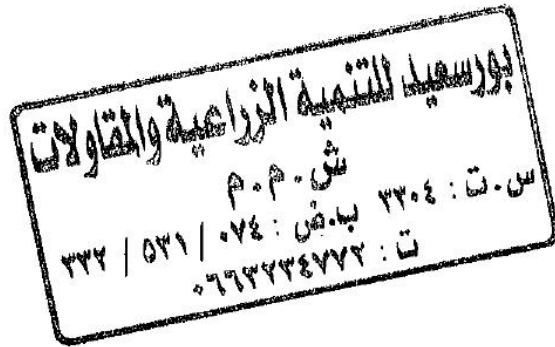 بورسعيد للتنمية الزراعية والمقاولات
ش . م . م
س . ت : ٣٣٠٤ ب . ض : ٠٧٤ / ٥٣١ / ٣٣٢
ت : ٠٦٦٣٢٣٤٧٧٢